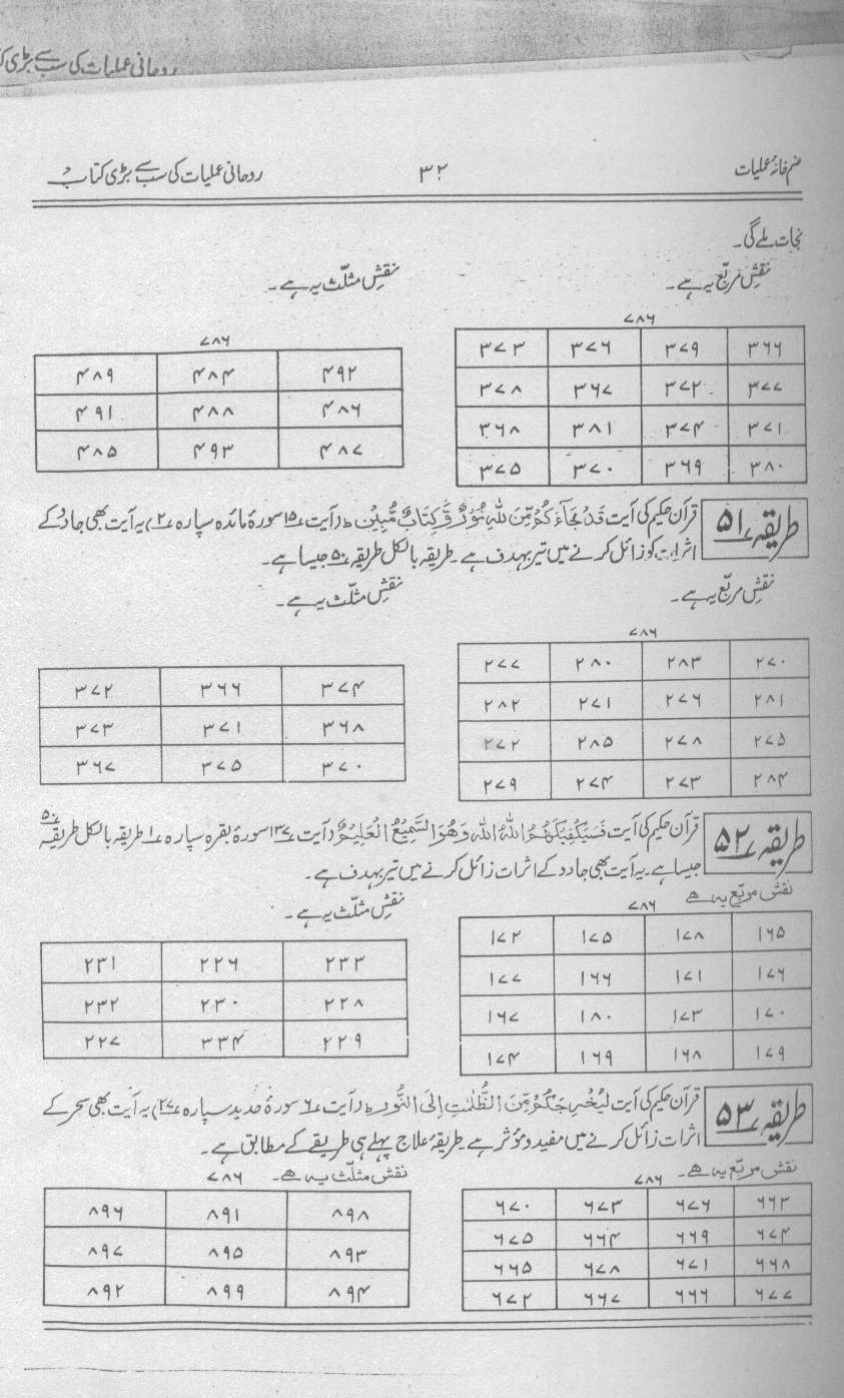 روحانی عملیات کی سب سے بڑی
صنم خانۂ عملیات ۳۲ روحانی عملیات کی سب سے بڑی کتاب
نجات ملے گی۔
نقش مربّع یہ ہے۔
۷۸۶
۳۶۶ ۳۷۹ ۳۷۶ ۳۷۳
۳۷۷ ۳۷۲ ۳۶۷ ۳۷۸
۳۷۱ ۳۷۴ ۳۸۱ ۳۶۸
۳۸۰ ۳۶۹ ۳۷۰ ۳۷۵
نقش مثلّث یہ ہے۔
۷۸۶
۴۹۲ ۴۸۴ ۴۸۹
۴۸۶ ۴۸۸ ۴۹۱
۴۸۷ ۴۹۳ ۴۸۵
طریقہ ۵۱
قرآن حکیم کی آیت قَدْ جَآءَ کُمْ مِّنَ اللّٰہِ نُوْرٌ وَّکِتَابٌ مُّبِیْن ط (آیت ۱۵ سورۂ مائدہ سپارہ ۲) یہ آیت بھی جادُو کے
اثرات کو زائل کرنے میں تیر بہدف ہے۔ طریقہ بالکل طریقہ ۵۰ جیسا ہے۔
نقش مربّع یہ ہے۔
۷۸۶
۲۷۰ ۲۸۳ ۲۸۰ ۲۷۷
۲۸۱ ۲۷۶ ۲۷۱ ۲۸۲
۲۷۵ ۲۷۸ ۲۸۵ ۲۷۲
۲۸۴ ۲۷۳ ۲۷۴ ۲۷۹
نقش مثلّث یہ ہے۔
۳۷۴ ۳۶۶ ۳۷۲
۳۶۸ ۳۷۱ ۳۷۳
۳۷۰ ۳۷۵ ۳۶۷
طریقہ ۵۲
قرآن حکیم کی آیت فَسَیَکْفِیْکَهُمُ اللّٰهُ اللّٰه وَهُوَ السَّمِیْعُ الْعَلِیْمُ (آیت ۱۳۷ سورۂ بقرہ سپارہ ۱) طریقہ بالکل طریقہ ۵۰
جیسا ہے۔ یہ آیت بھی جادو کے اثرات زائل کرنے میں تیر بہدف ہے۔
نقش مربّع یہ ہے
۷۸۶
۱۶۵ ۱۷۸ ۱۷۵ ۱۷۲
۱۷۶ ۱۷۱ ۱۶۶ ۱۷۷
۱۷۰ ۱۷۳ ۱۸۰ ۱۶۷
۱۷۹ ۱۶۸ ۱۶۹ ۱۷۴
نقش مثلّث یہ ہے۔
۲۳۳ ۲۲۶ ۲۳۱
۲۲۸ ۲۳۰ ۲۳۲
۲۲۹ ۳۳۴ ۲۲۷
طریقہ ۵۳
قرآن حکیم کی آیت لِیُخْرِجَکُمْ مِّنَ الظُّلُمٰتِ اِلَی النُّوْر ط (آیت ۶ سورۂ حدید سپارہ ۲۷) یہ آیت بھی سحر کے
اثرات زائل کرنے میں مفید و مؤثر ہے۔ طریقۂ علاج پہلے ہی طریقے کے مطابق ہے۔
نقش مربّع یہ ہے۔
۷۸۶
۶۶۳ ۶۷۶ ۶۷۳ ۶۷۰
۶۷۴ ۶۶۹ ۶۶۴ ۶۷۵
۶۶۸ ۶۷۱ ۶۷۸ ۶۶۵
۶۷۷ ۶۶۶ ۶۶۷ ۶۷۲
نقش مثلّث یہ ہے۔
۷۸۶
۸۹۸ ۸۹۱ ۸۹۶
۸۹۳ ۸۹۵ ۸۹۷
۸۹۴ ۸۹۹ ۸۹۲